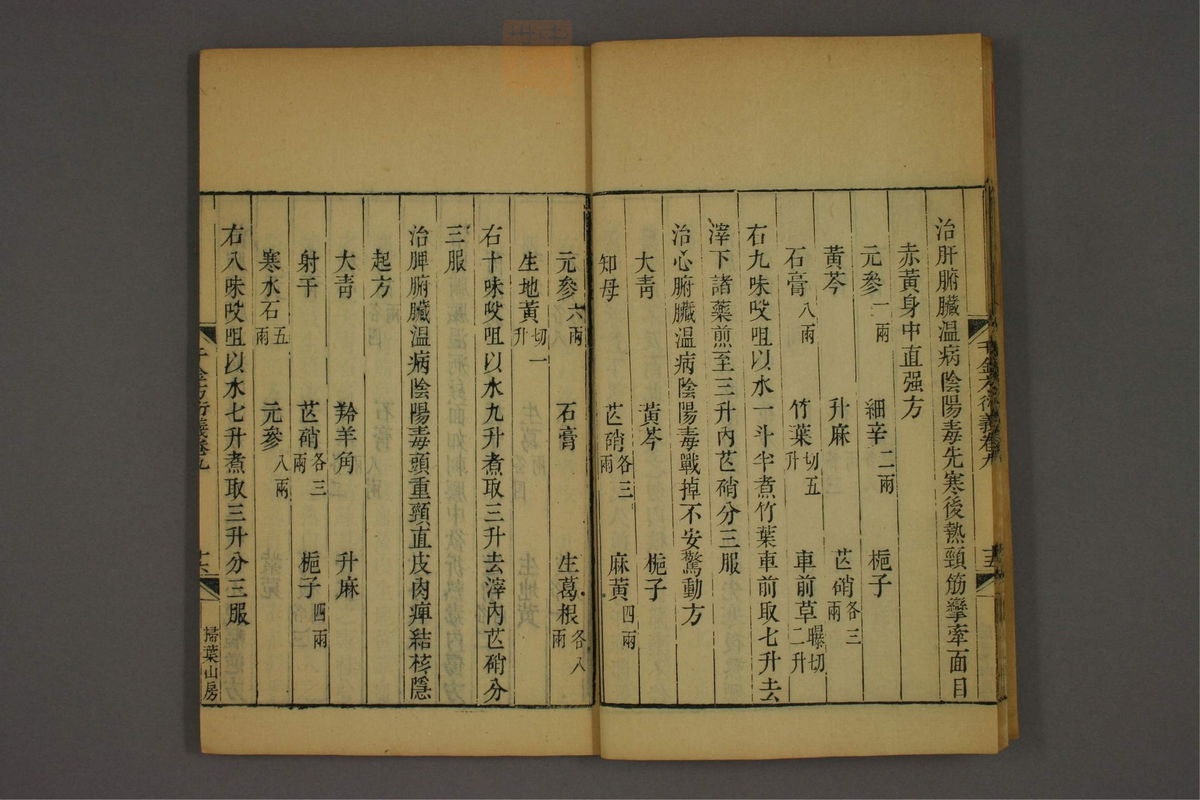 治肝腑臟溫病陰陽毒先寒後熱頸筋攣牽面目
赤黃身中直强方
元參一兩 細辛二兩 梔子
黃芩 升麻 芒硝各三兩
石膏八兩 竹葉切五升 車前草曝切二升
右九味㕮咀以水一斗半煮竹葉車前取七升去
滓下諸藥煎至三升內芒硝分三服
治心腑臟溫病陰陽毒戰掉不安驚動方
大靑 黃芩 梔子
知母 芒硝各三兩 麻黃四兩
元參六兩 石膏 生葛根各八兩
生地黃切一升
右十味㕮咀以水九升煮取三升去滓內芒硝分
三服
治脾腑臟溫病陰陽毒頭重頸直皮肉痺結核隱
起方
大靑 羚羊角 升麻
射干 芒硝各三兩 梔子四兩
寒水石五兩 元參八兩
右八味㕮咀以水七升煮取三升分三服
千金方衍義卷九
掃葉山房